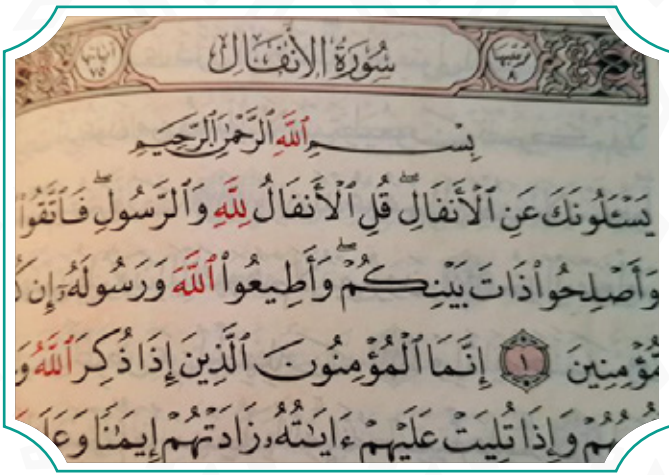 ترتيبها ٨ سُورَةُ الأَنفَال آياتها ٧٥
بِسْمِ ٱللَّهِ ٱلرَّحْمَٰنِ ٱلرَّحِيمِ
يَسْـَٔلُونَكَ عَنِ ٱلْأَنفَالِۖ قُلِ ٱلْأَنفَالُ لِلَّهِ وَٱلرَّسُولِۖ فَٱتَّقُوا۟
وَأَصْلِحُوا۟ ذَاتَ بَيْنِكُمْۖ وَأَطِيعُوا۟ ٱللَّهَ وَرَسُولَهُۥٓ إِن
مُّؤْمِنِينَ ١ إِنَّمَا ٱلْمُؤْمِنُونَ ٱلَّذِينَ إِذَا ذُكِرَ ٱللَّهُ
وَإِذَا تُلِيَتْ عَلَيْهِمْ ءَايَٰتُهُۥ زَادَتْهُمْ إِيمَٰنًا